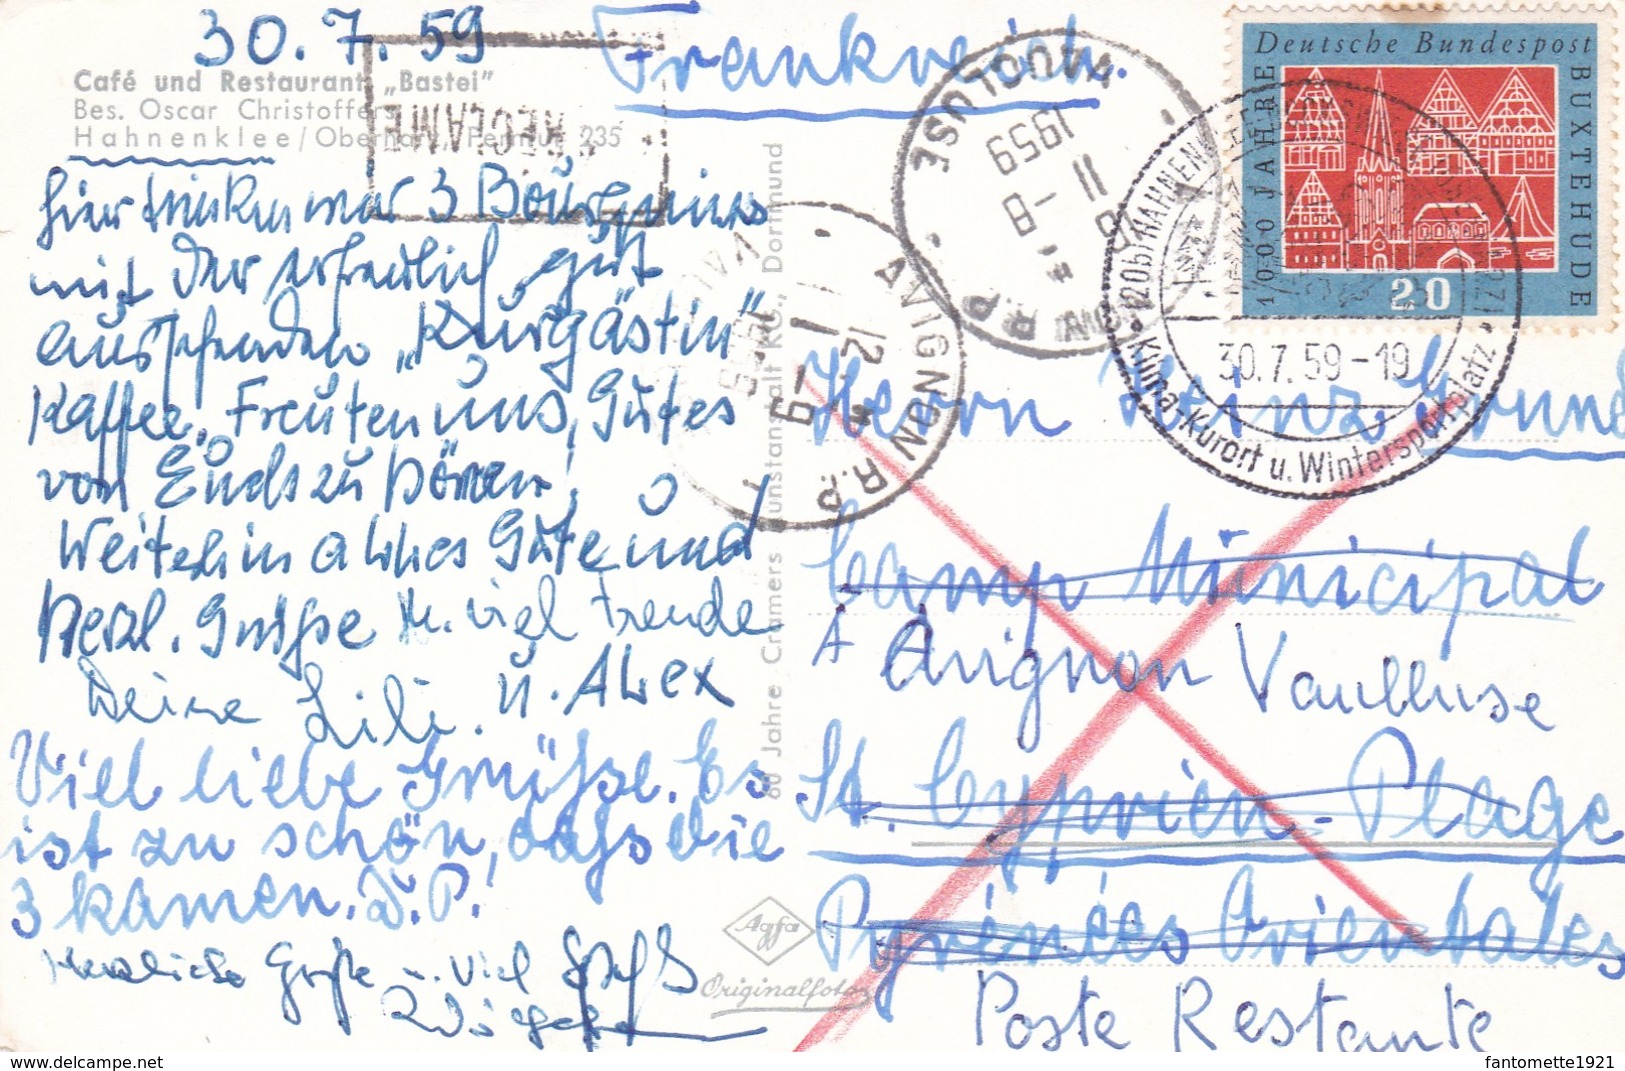 30.7.59
Frankreich.
Café und Restaurant „Bastei"
Bes. Oscar Christoffers
Hahnenklee/Oberharz, Fernruf 235
NON RECLAME
Hier trinken wir 3
mit der erfreulich gut
aussehenden „Kurgästin"
Kaffee. Freuten uns, Gutes
von Euch zu hören!
Weiterhin alles Gute und
herzl. Grüße u. viel Freude
Deine Lili. u. Alex
Viel liebe Grüße. Es
ist zu schön, dass die
3 kamen. D. P.
Herzliche Grüße u. viel Spaß
60 Jahre Cramers Kunstanstalt KG., Dortmund
Agfa
Originalfoto
Deutsche Bundespost
1000 JAHRE
BUXTEHUDE
20
(20b) HAHNENKLEE-BOCKSWIESE (OBERHARZ)
30.7.59-19
Klima-Kurort u. Wintersportplatz
AVIGNON R.P.
VAUCLUSE
11-8
1959
AVIGNON R.P
12
1-9
1959
VAUCLUSE
Herrn Heinz Grund
Camp Municipal
à Avignon Vaucluse
St. Cyprien-Plage
Pyrénées Orientales
Poste Restante
fantomette1921